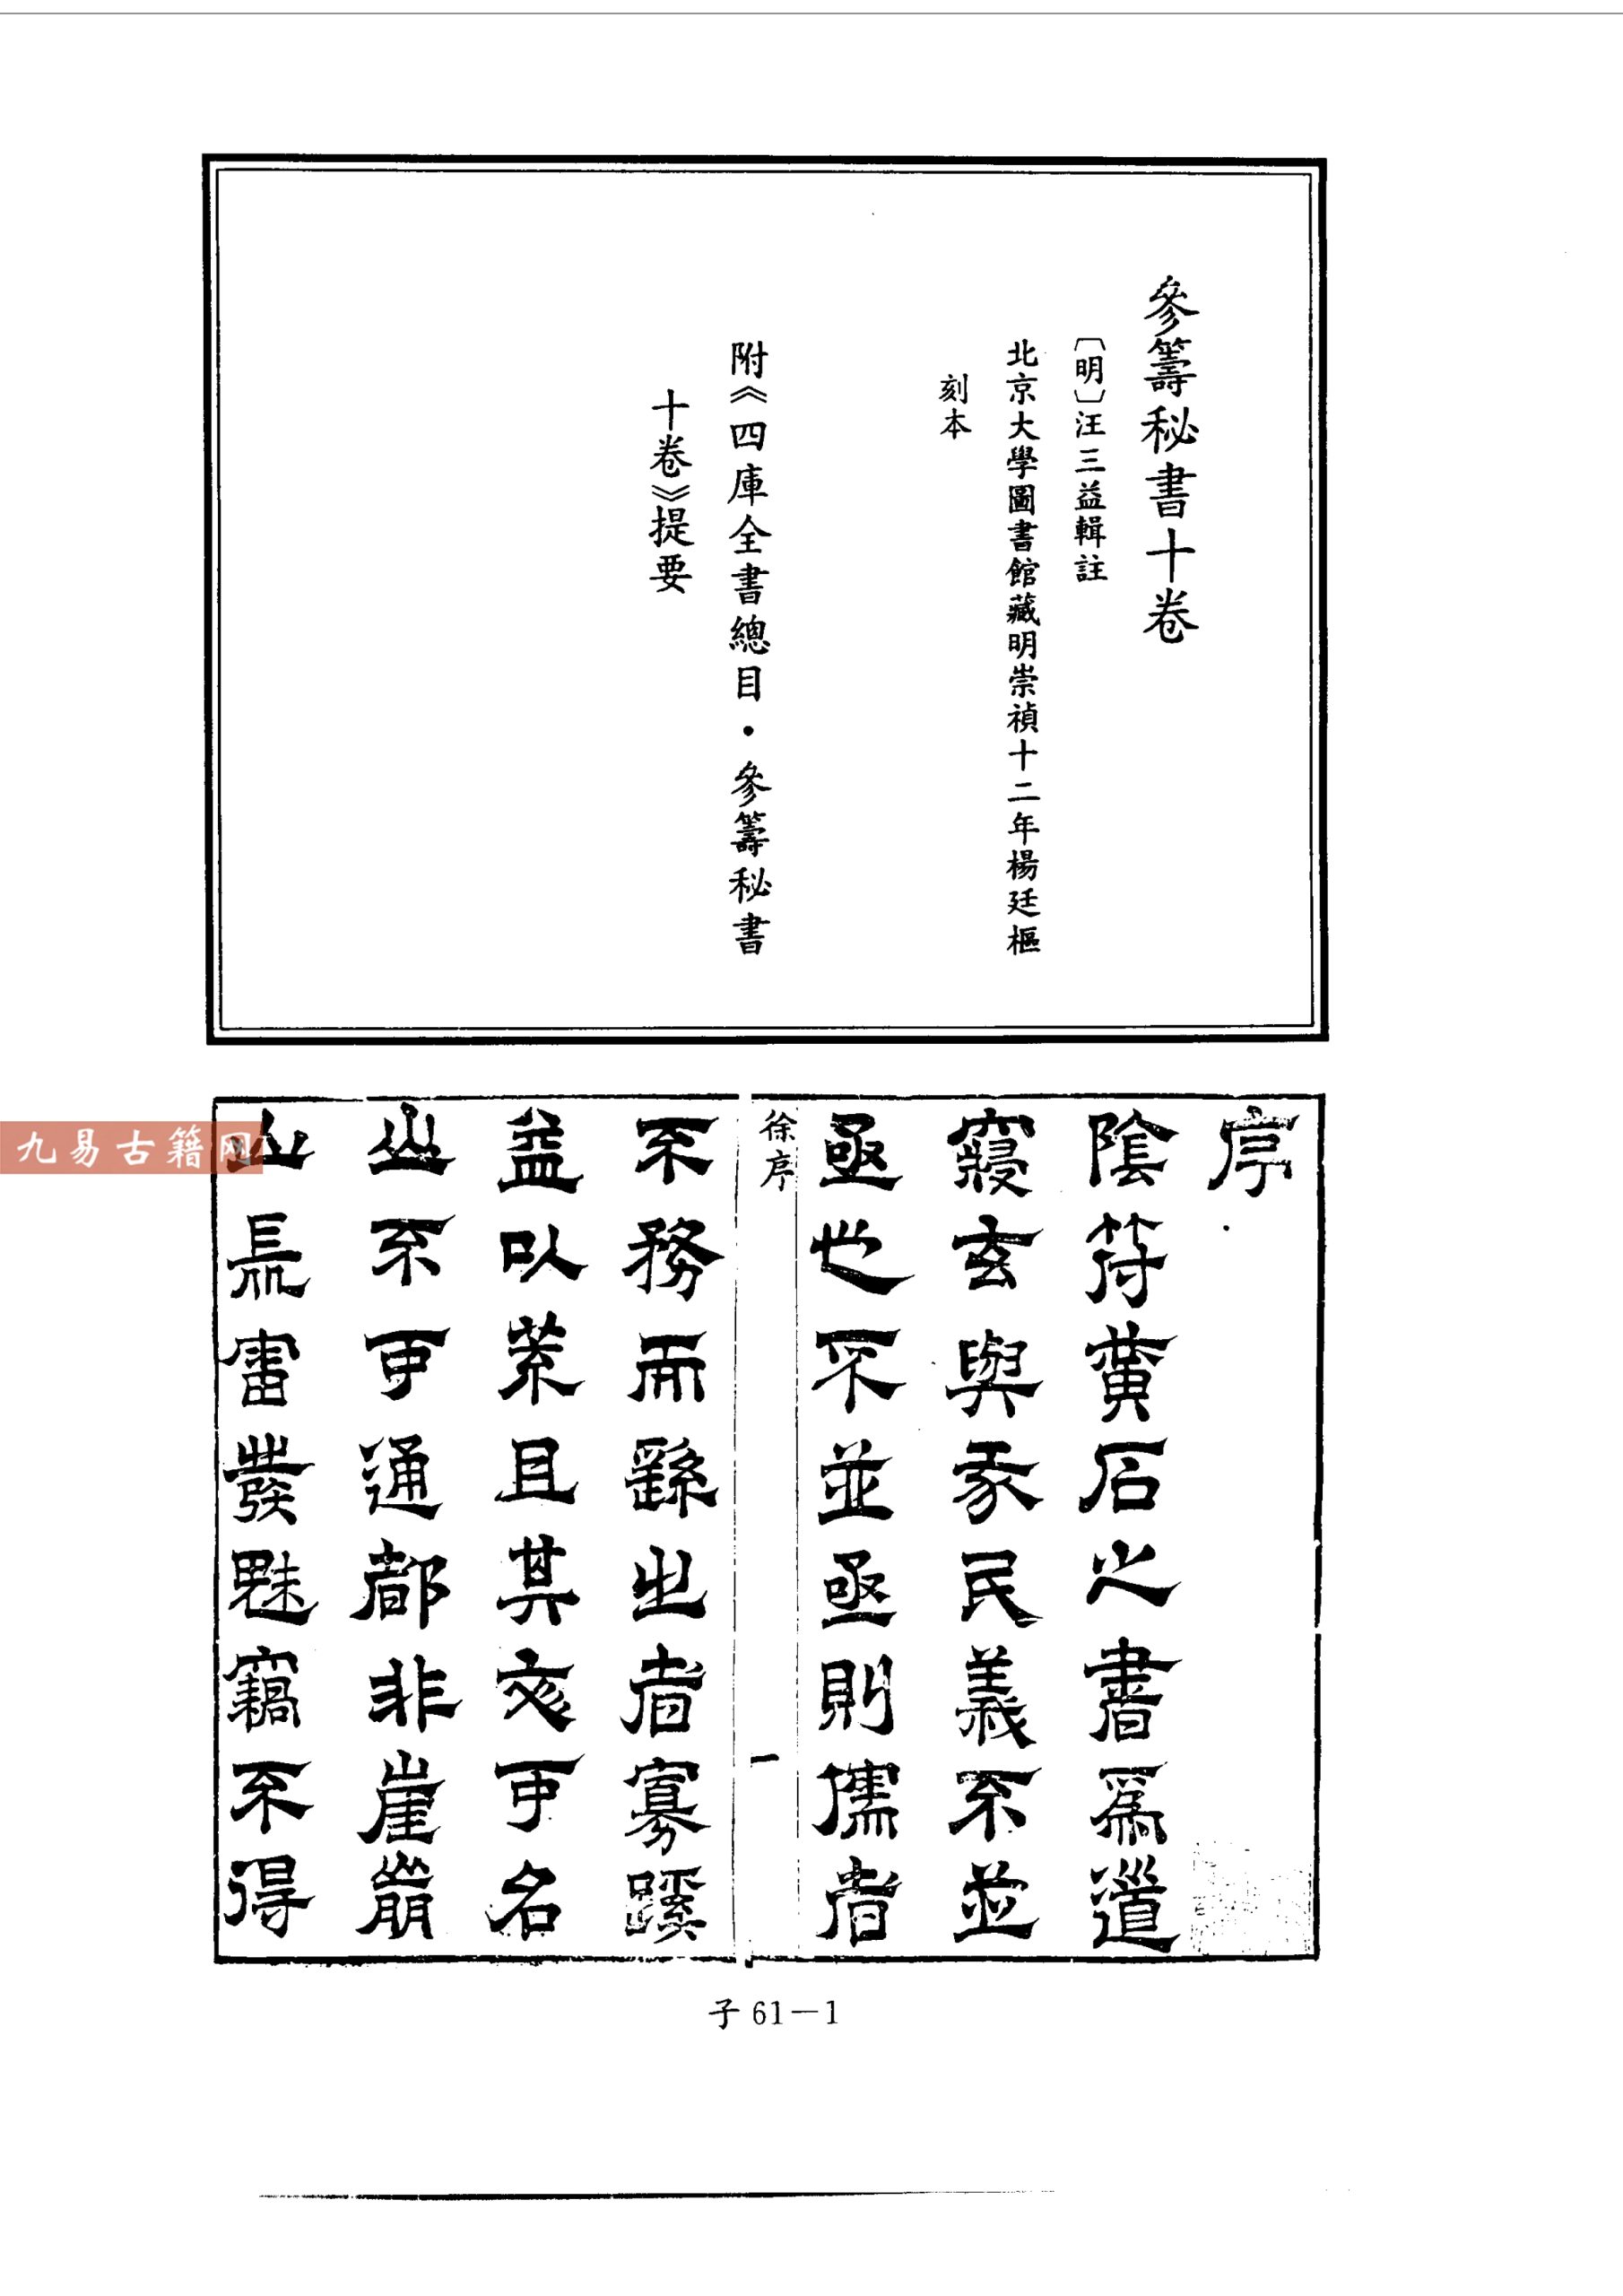 參籌秘書十卷
〔明〕汪三益輯註
北京大學圖書館藏明崇禎十二年楊廷樞
刻本
附《四庫全書總目·參籌秘書
十卷》提要
序
陰符黃石之書爲道
寢玄與彖民義不並
亟也不並亟則儒者
徐序
一
不務而繇出者寡蹊
益以荒且其文可名
山不可通都非崖崩
山
雷發魅竊不得
子61—1
九易古籍网